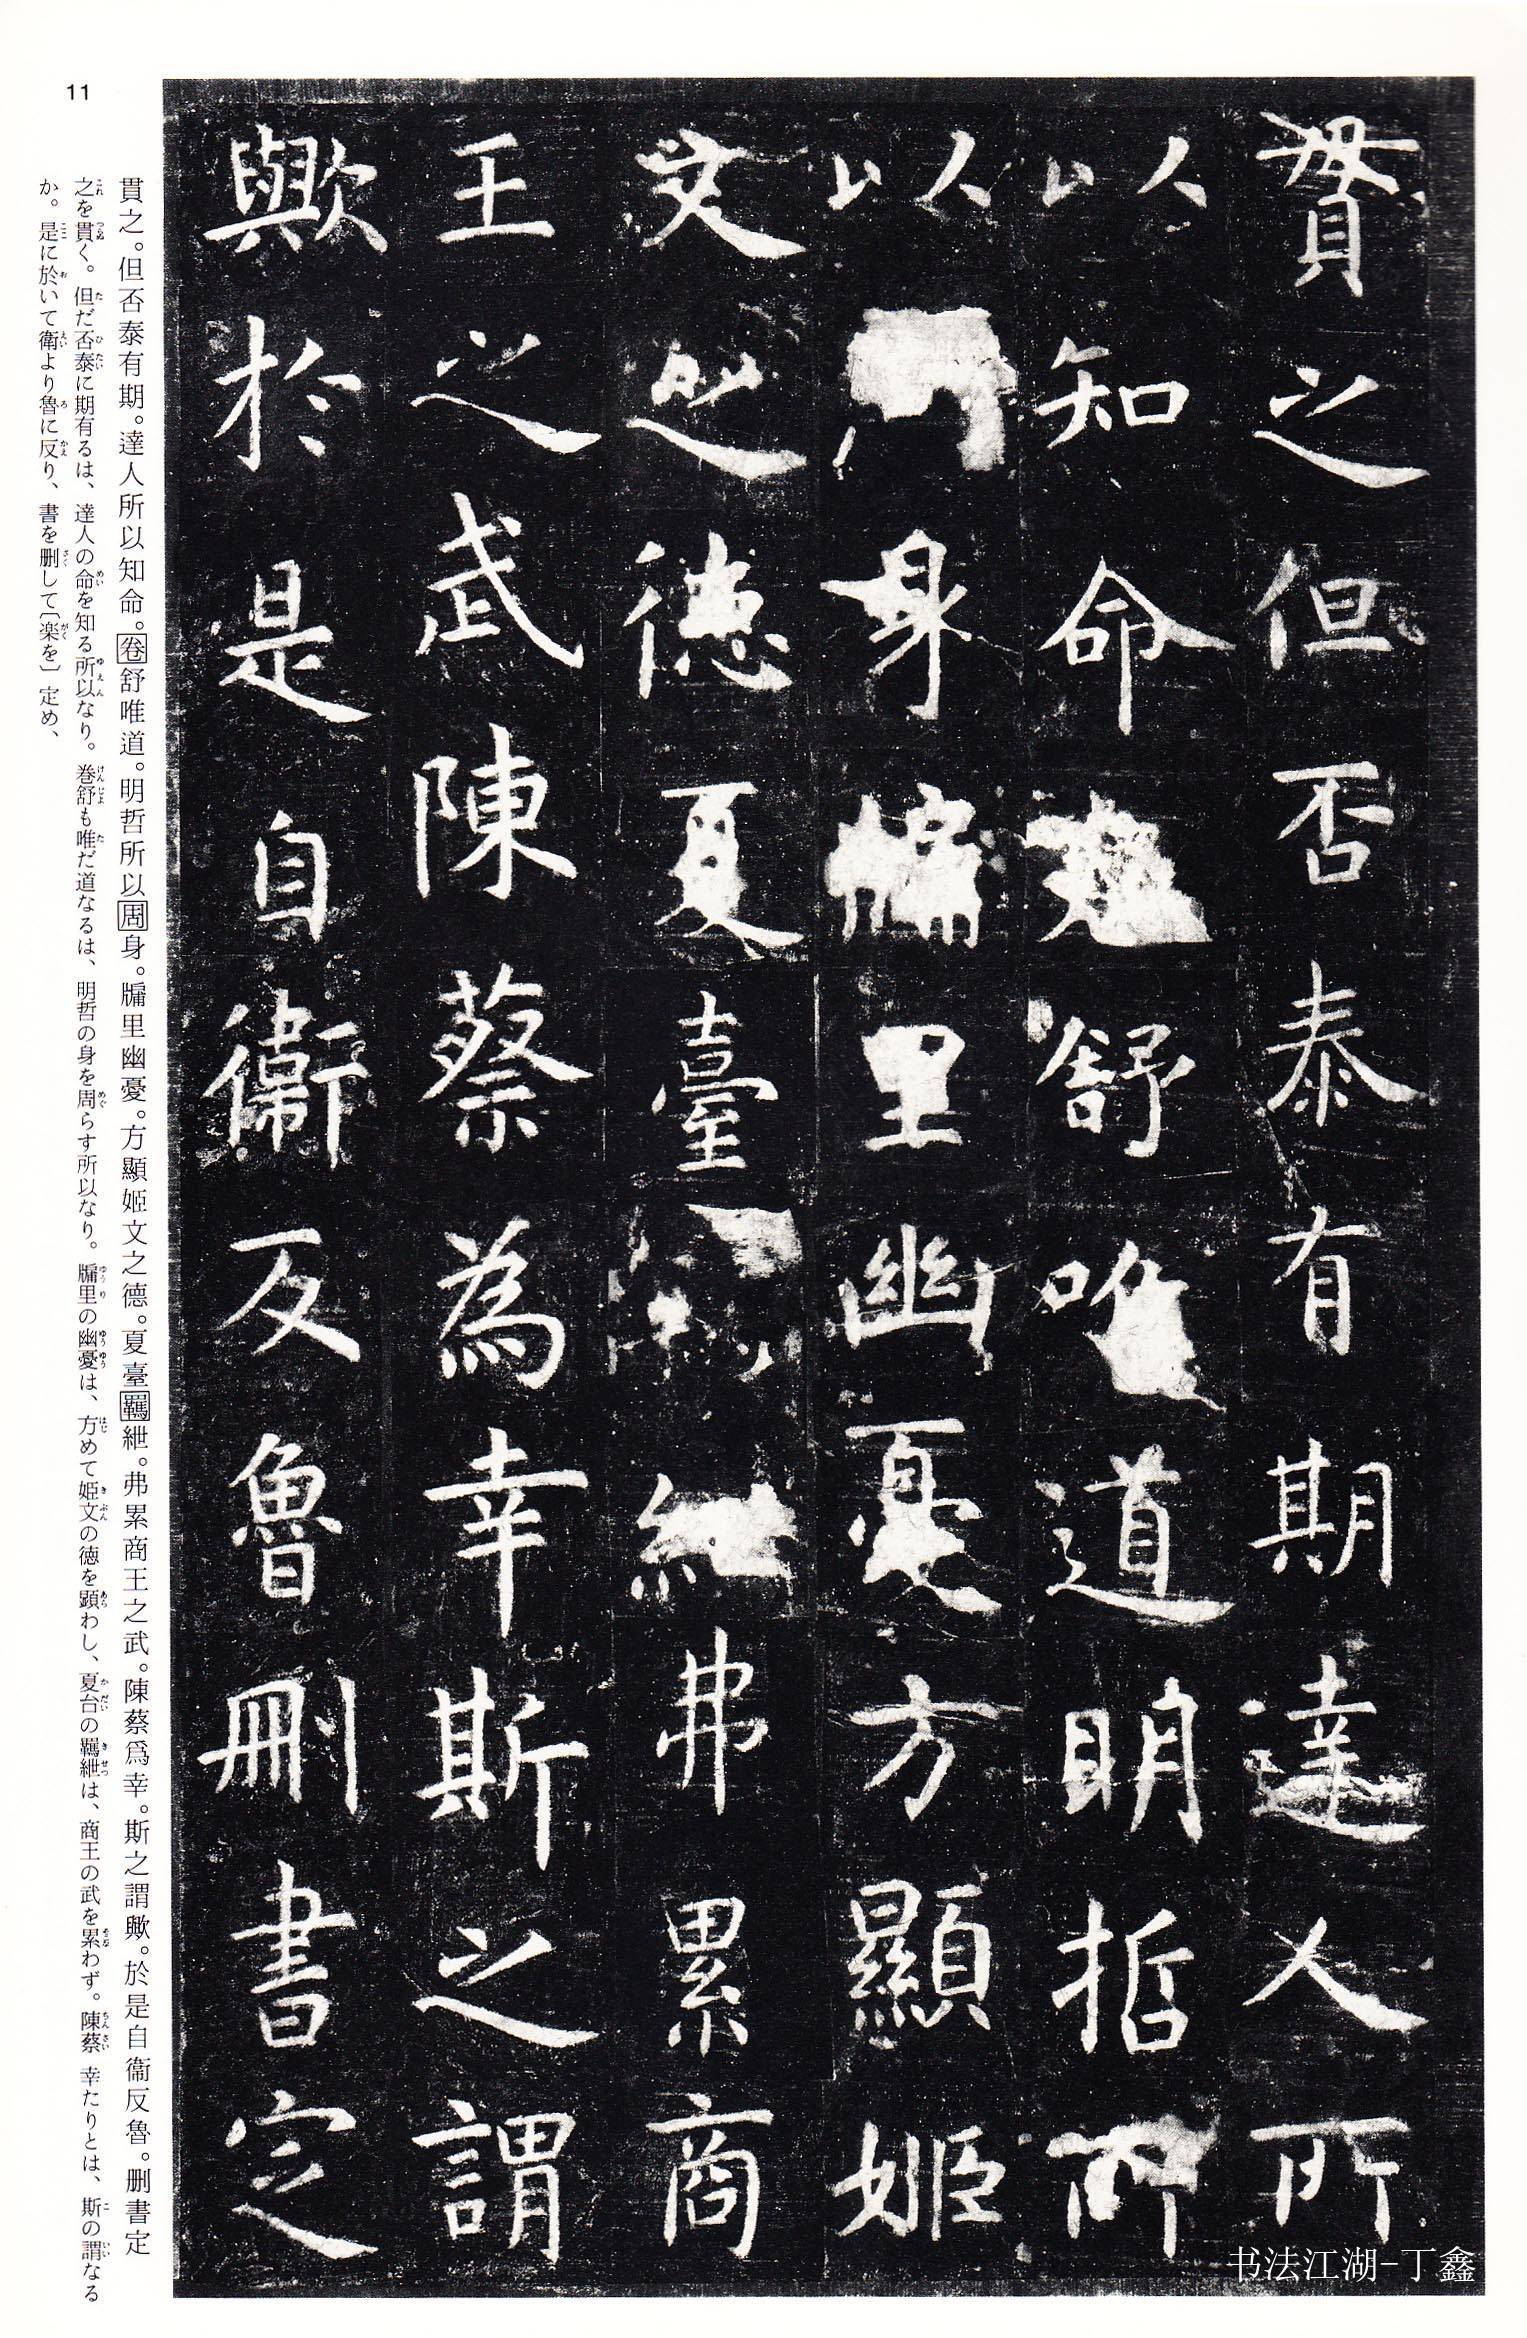 貫之但否泰有期達人所
以知命卷舒唯道明哲所
以身牖里幽憂方顯姬
文之德夏臺紲弗累商
王之武陳蔡為幸斯之謂
歟於是自衞反魯刪書定
貫之。但否泰有期。達人所以知命。卷舒唯道。明哲所以周身。牖里幽憂。方顯姬文之德。夏臺羈紲。弗累商王之武。陳蔡爲幸。斯之謂歟。於是自衞反魯。刪書定
之を貫く。但だ否泰に期有るは、達人の命を知る所以なり。卷舒も唯だ道なるは、明哲の身を周らす所以なり。牖里の幽憂は、方めて姫文の徳を顕わし、夏台の羈紲は、商王の武を累わず。陳蔡 幸たりとは、斯の謂なる
か。是に於いて衛より魯に反り、書を删して〔楽を〕定め、
11
书法江湖-丁鑫